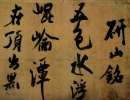 研山銘
五色水浮
崑崙潭
在頂出黑